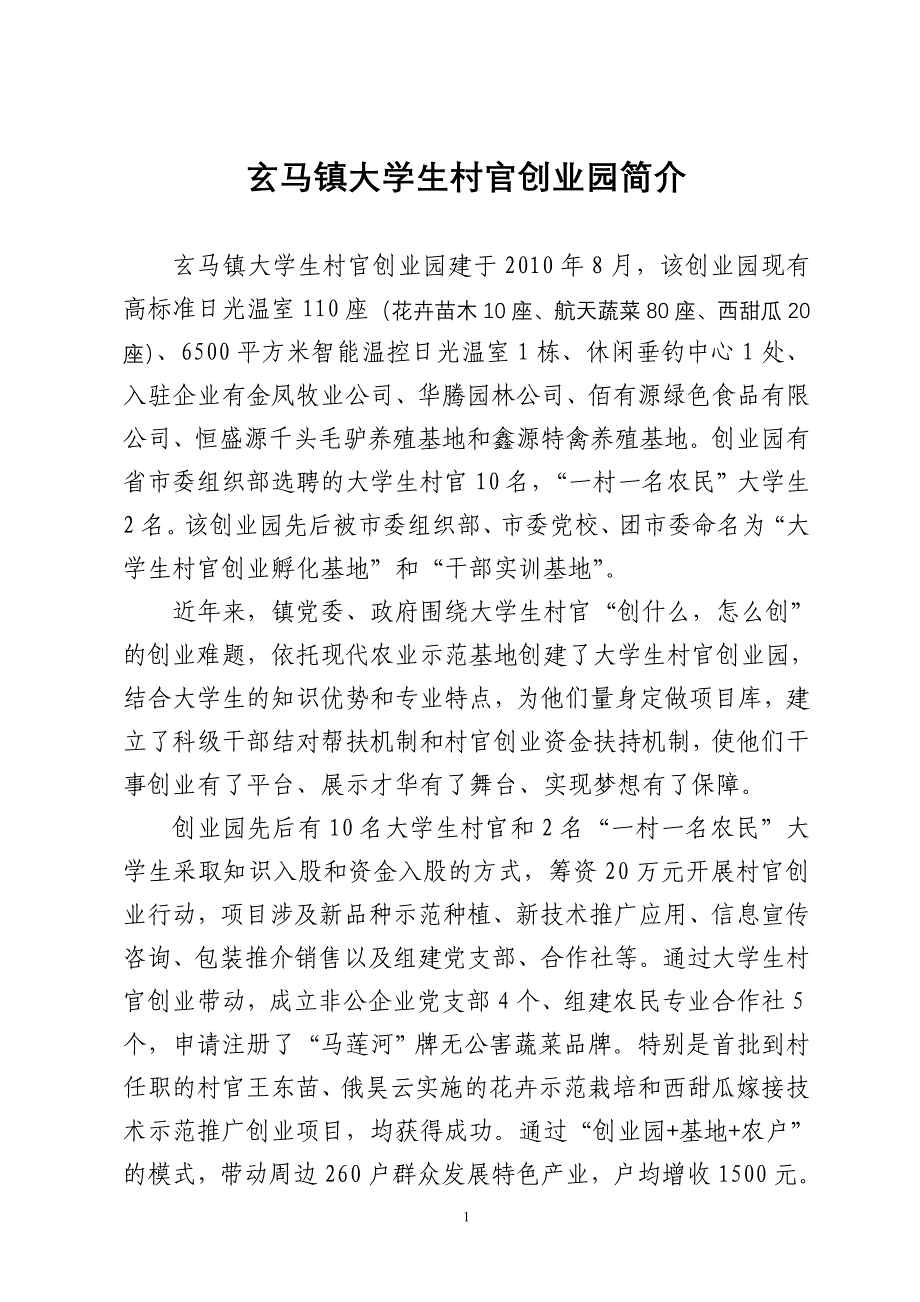 玄马镇大学生村官创业园简介
玄马镇大学生村官创业园建于 2010 年 8 月，该创业园现有
高标准日光温室 110 座（花卉苗木 10 座、航天蔬菜 80 座、西甜瓜 20
座）、6500 平方米智能温控日光温室 1 栋、休闲垂钓中心 1 处、
入驻企业有金凤牧业公司、华腾园林公司、佰有源绿色食品有限
公司、恒盛源千头毛驴养殖基地和鑫源特禽养殖基地。创业园有
省市委组织部选聘的大学生村官 10 名，“一村一名农民”大学生
2 名。该创业园先后被市委组织部、市委党校、团市委命名为“大
学生村官创业孵化基地”和“干部实训基地”。
近年来，镇党委、政府围绕大学生村官“创什么，怎么创”
的创业难题，依托现代农业示范基地创建了大学生村官创业园，
结合大学生的知识优势和专业特点，为他们量身定做项目库，建
立了科级干部结对帮扶机制和村官创业资金扶持机制，使他们干
事创业有了平台、展示才华有了舞台、实现梦想有了保障。
创业园先后有 10 名大学生村官和 2 名“一村一名农民”大
学生采取知识入股和资金入股的方式，筹资 20 万元开展村官创
业行动，项目涉及新品种示范种植、新技术推广应用、信息宣传
咨询、包装推介销售以及组建党支部、合作社等。通过大学生村
官创业带动，成立非公企业党支部 4 个、组建农民专业合作社 5
个，申请注册了“马莲河”牌无公害蔬菜品牌。特别是首批到村
任职的村官王东苗、俄昊云实施的花卉示范栽培和西甜瓜嫁接技
术示范推广创业项目，均获得成功。通过“创业园+基地+农户”
的模式，带动周边 260 户群众发展特色产业，户均增收 1500 元。
1